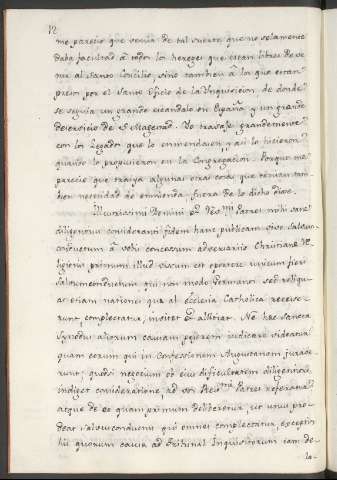 12
me parecio que venia de tal suerte que no solamente
daba facultad â todos los hereges que estan libres de ve-
nir al sacro Concilio, sino tambien â los que estan
presos por el Santo Oficio de la Inquisicion de donde
se seguia un grande escandalo en España y un grande
deservicio de S. Magestad. Yo trabaje grandemente
con los Legados que lo enmendasen y asi lo hicieron
quando lo propusieron en la Congregacion. Porque me
parecio que traya algunas otras cosas que tenian tam-
bien necesidad de enmienda, fuera de lo dicho dixe.
Illustrissimi Domini et Patres mihi sane
diligenter consideranti fidem hanc publicam sive salvum
conductum â vobis concessum adversariis Christianæ Re-
ligionis, primum illud visum est oportere unicum fieri
salvumconductum qui non modo Germanos sed reliqu-
as etiam nationes quæ ab ecclesia Catholica recesse-
runt, complectatur, invitet et alliciat. Ne hæc sancta
Synodus aliorum causam pejorem judicare videatur
quam eorum qui in Confessionem Augustanam jurave-
runt; quod negotium ob ejus dificultatem diligentiori
indiget consideratione, ad vos Patres referatur
atque de eo quamprimum deliberetur, ut unus pro-
deat salvusconductus qui omnes complectatur, exceptis
his quorum causa ad Tribunal Inquisitorum jam de-
la-